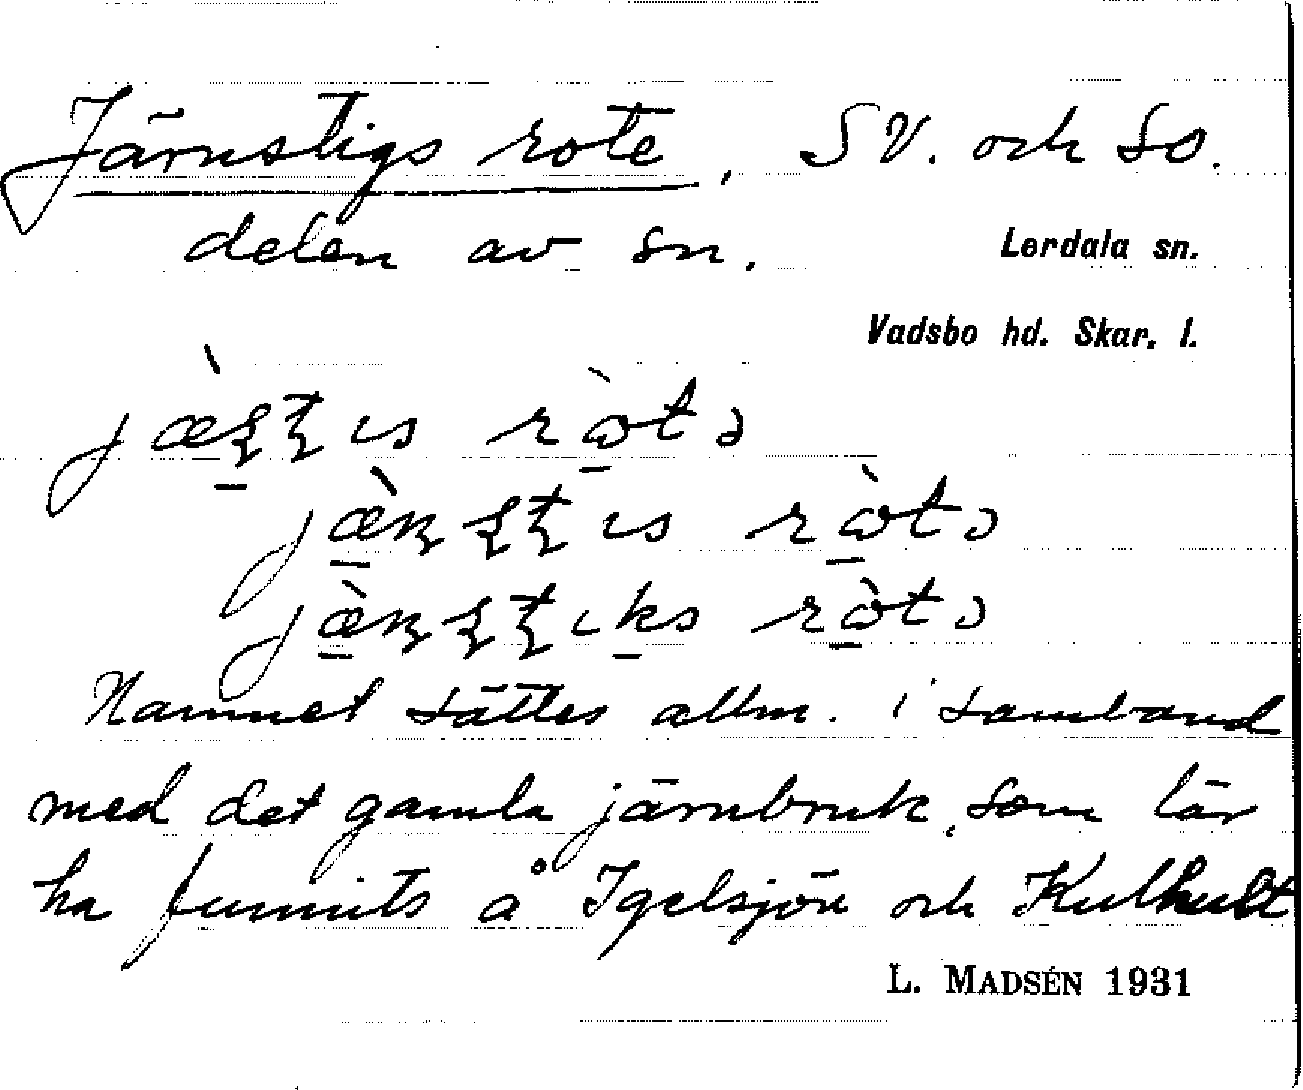 Järnstigs rote, SV. och SO.
delen av sn.
Lerdala sn.
Vadsbo hd. Skar. l.
Namnet sättes allm. i samband
med det gamla järnbruk, som lär
ha funnits å Igelsjön och Kulhult
L. MADSÉN 1931